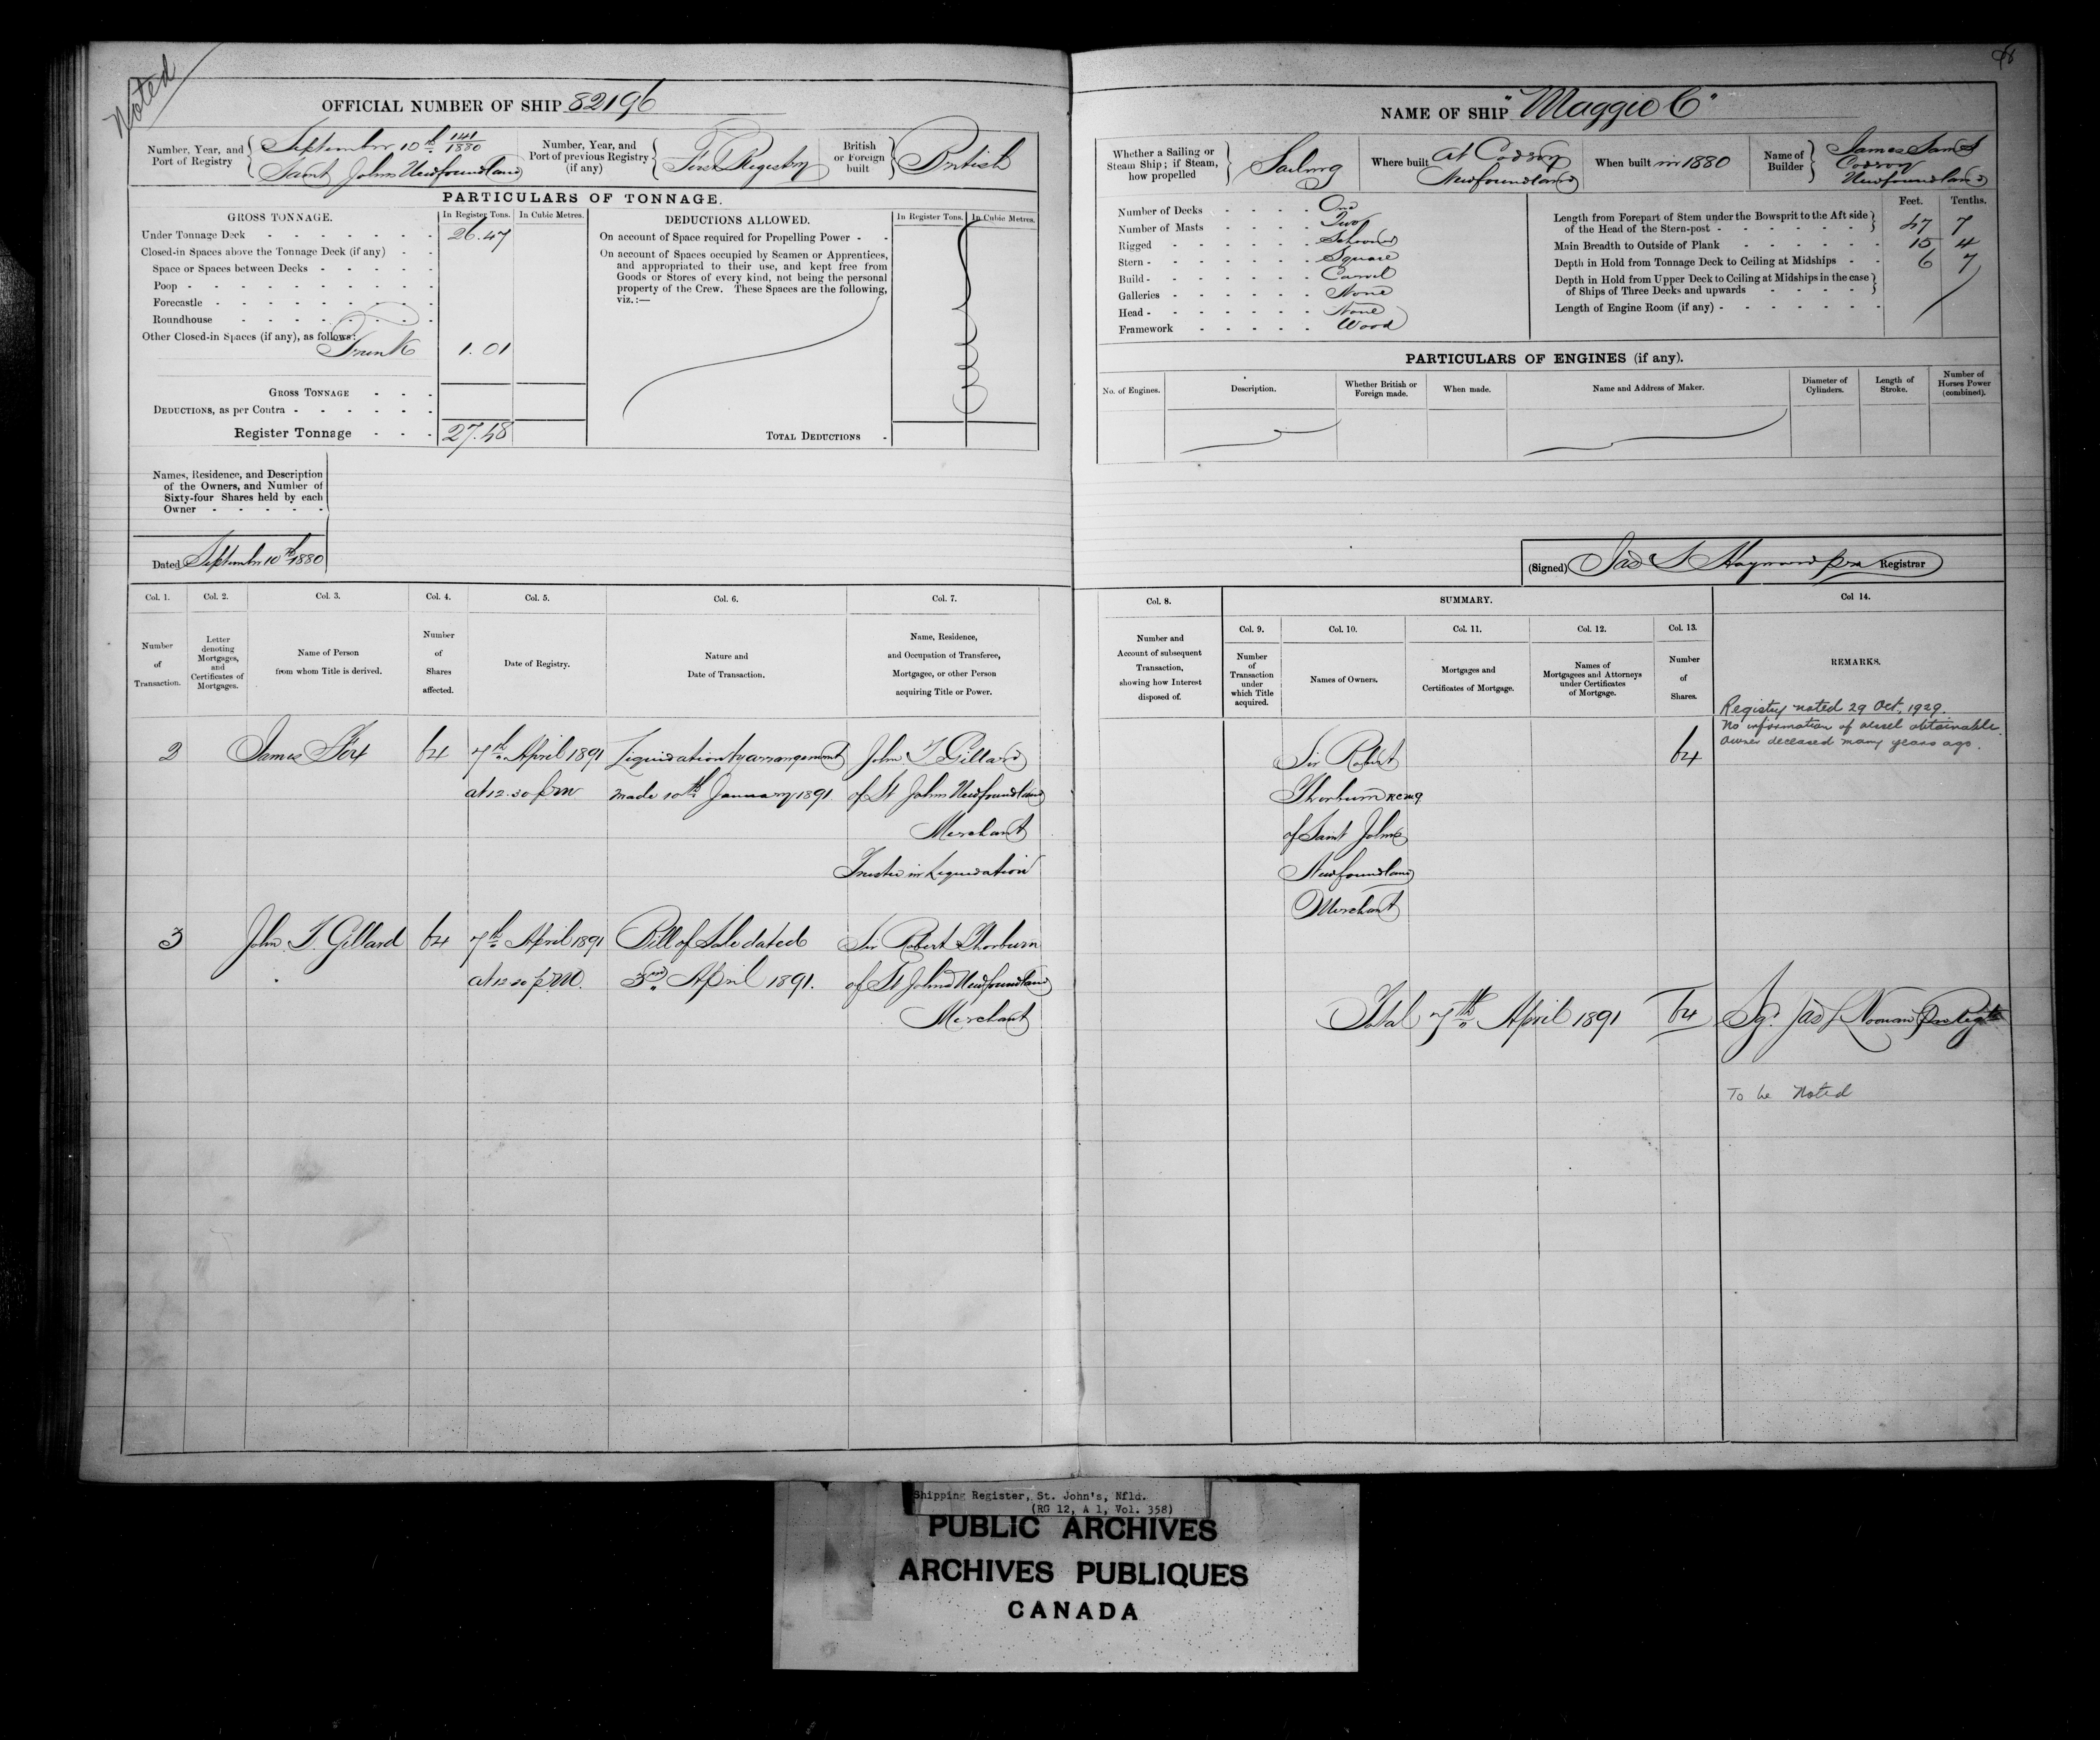 Noted
OFFICIAL NUMBER OF SHIP 82196
Number, Year, and Port of Registry
September 10th 141/1880
Saint Johns Newfoundland
Number, Year, and Port of previous Registry (if any)
First Registry
British or Foreign built
British
PARTICULARS OF TONNAGE.
GROSS TONNAGE.
In Register Tons.
In Cubic Metres.
Under Tonnage Deck 26.47
Closed-in Spaces above the Tonnage Deck (if any)
Space or Spaces between Decks
Poop
Forecastle
Roundhouse
Other Closed-in Spaces (if any), as follows:
Trunk 1.01
GROSS TONNAGE
DEDUCTIONS, as per Contra
Register Tonnage 27.48
DEDUCTIONS ALLOWED.
In Register Tons.
In Cubic Metres.
On account of Space required for Propelling Power
On account of Spaces occupied by Seamen or Apprentices,
and appropriated to their use, and kept free from
Goods or Stores of every kind, not being the personal
property of the Crew. These Spaces are the following,
viz.:—
TOTAL DEDUCTIONS
Names, Residence, and Description
of the Owners, and Number of
Sixty-four Shares held by each
Owner
Dated September 10th 1880
Col. 1. Col. 2. Col. 3. Col. 4. Col. 5. Col. 6. Col. 7.
Number of Transaction.
Letter denoting Mortgages, and Certificates of Mortgages.
Name of Person from whom Title is derived.
Number of Shares affected.
Date of Registry.
Nature and Date of Transaction.
Name, Residence, and Occupation of Transferee, Mortgagee, or other Person acquiring Title or Power.
2 James Fox 64 7th April 1891 Liquidation by arrangement John T Gillard
at 12.30 pm made 10th January 1891 of St Johns Newfoundland
Merchant
Trustee in Liquidation
3 John T. Gillard 64 7th April 1891 Bill of Sale dated Sir Robert Thorburn
at 12 30 p.m. 3rd April 1891. of St Johns Newfoundland
Merchant
NAME OF SHIP "Maggie C"
Whether a Sailing or Steam Ship; if Steam, how propelled
Sailing
Where built
At Codroy
Newfoundland
When built in 1880
Name of Builder
James Sams
Codroy
Newfoundland
Number of Decks One
Number of Masts Two
Rigged Schooner
Stern Square
Build Carvel
Galleries None
Head None
Framework Wood
Feet. Tenths.
Length from Forepart of Stem under the Bowsprit to the Aft side
of the Head of the Stern-post 47 7
Main Breadth to Outside of Plank 15 4
Depth in Hold from Tonnage Deck to Ceiling at Midships 6 7
Depth in Hold from Upper Deck to Ceiling at Midships in the case
of Ships of Three Decks and upwards
Length of Engine Room (if any)
PARTICULARS OF ENGINES (if any).
No. of Engines.
Description.
Whether British or Foreign made.
When made.
Name and Address of Maker.
Diameter of Cylinders.
Length of Stroke.
Number of Horses Power (combined).
(Signed) Jas S Hayward pro Registrar
Col. 8.
SUMMARY.
Col 14.
Col. 9. Col. 10. Col. 11. Col. 12. Col. 13.
Number and Account of subsequent Transaction, showing how Interest disposed of.
Number of Transaction under which Title acquired.
Names of Owners.
Mortgages and Certificates of Mortgage.
Names of Mortgagees and Attorneys under Certificates of Mortgage.
Number of Shares.
REMARKS.
Registry noted 29 Oct. 1929.
No information of vessel obtainable.
Owner deceased many years ago.
Sir Robert 64
Thorburn KCMG
of Saint Johns
Newfoundland
Merchant
Total 7th April 1891 64 Sgd. Jas L Noonan pro Regtr
To be Noted
Shipping Register, St. John's, Nfld.
(RG 12, A 1, Vol. 358)
PUBLIC ARCHIVES
ARCHIVES PUBLIQUES
CANADA